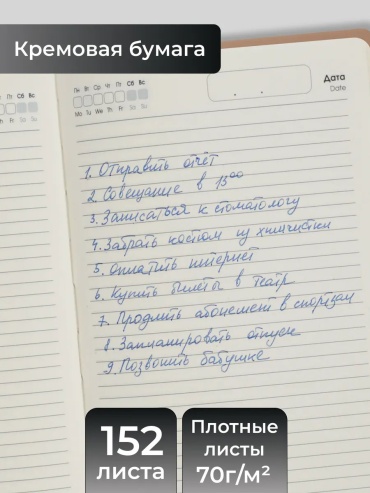 Кремовая бумага
Пт Сб Вс
Fr Sa Su
Пн Вт Ср Чт Пт Сб Вс
Mo Tu We Th Fr Sa Su
Дата
Date
1. Отправить отчёт
2. Совещание в 15⁰⁰
3. Записаться к стоматологу
4. Забрать костюм из химчистки
5. Оплатить интернет
6. Купить билеты в театр
7. Продлить абонемент в спортзал
8. Запланировать отпуск
9. Позвонить бабушке
152
листа
Плотные
листы
70г/м²